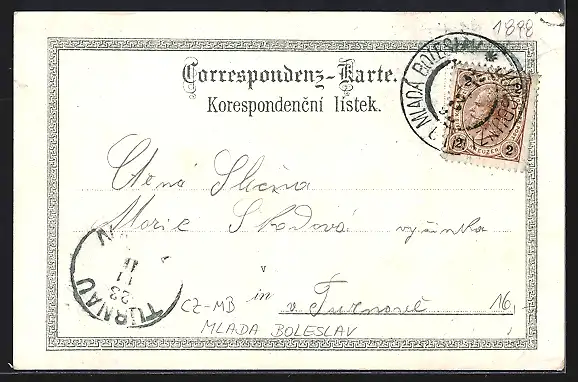 1898
Correspondenz-Karte.
Korespondenční lístek.
MLADÁ BOLESLAV
2 KREUZER 2
Ctěná Slečna
Marie Škodová
v
in v Turnově 16
TURNAU
23 11
CZ-MB
MLADA BOLESLAV